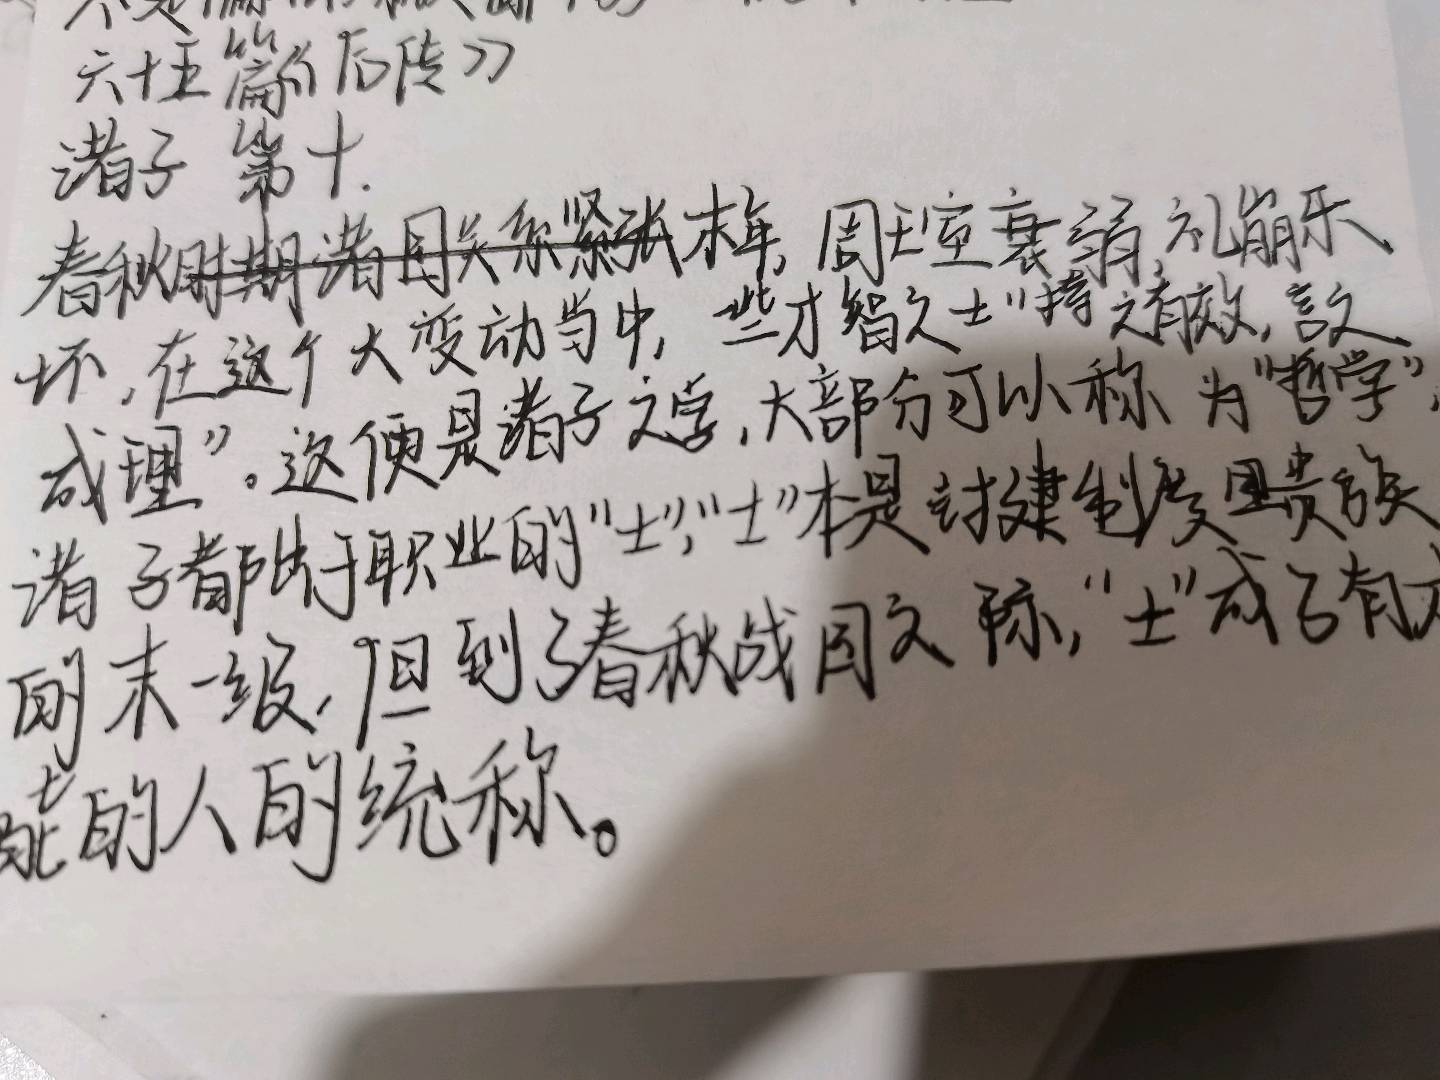 六十五篇《后传》
诸子 第十.
春秋时期诸国关系紧张末年,周王室衰弱,礼崩乐
坏,在这个大变动当中,一些才智之士"持之有效,言之
成理"。这便是诸子之学,大部分可以称为"哲学",
诸子都出于职业的"士","士"本是封建制度里贵族
的末一级,但到了春秋战国之际,"士"成了有才
能的人的统称。